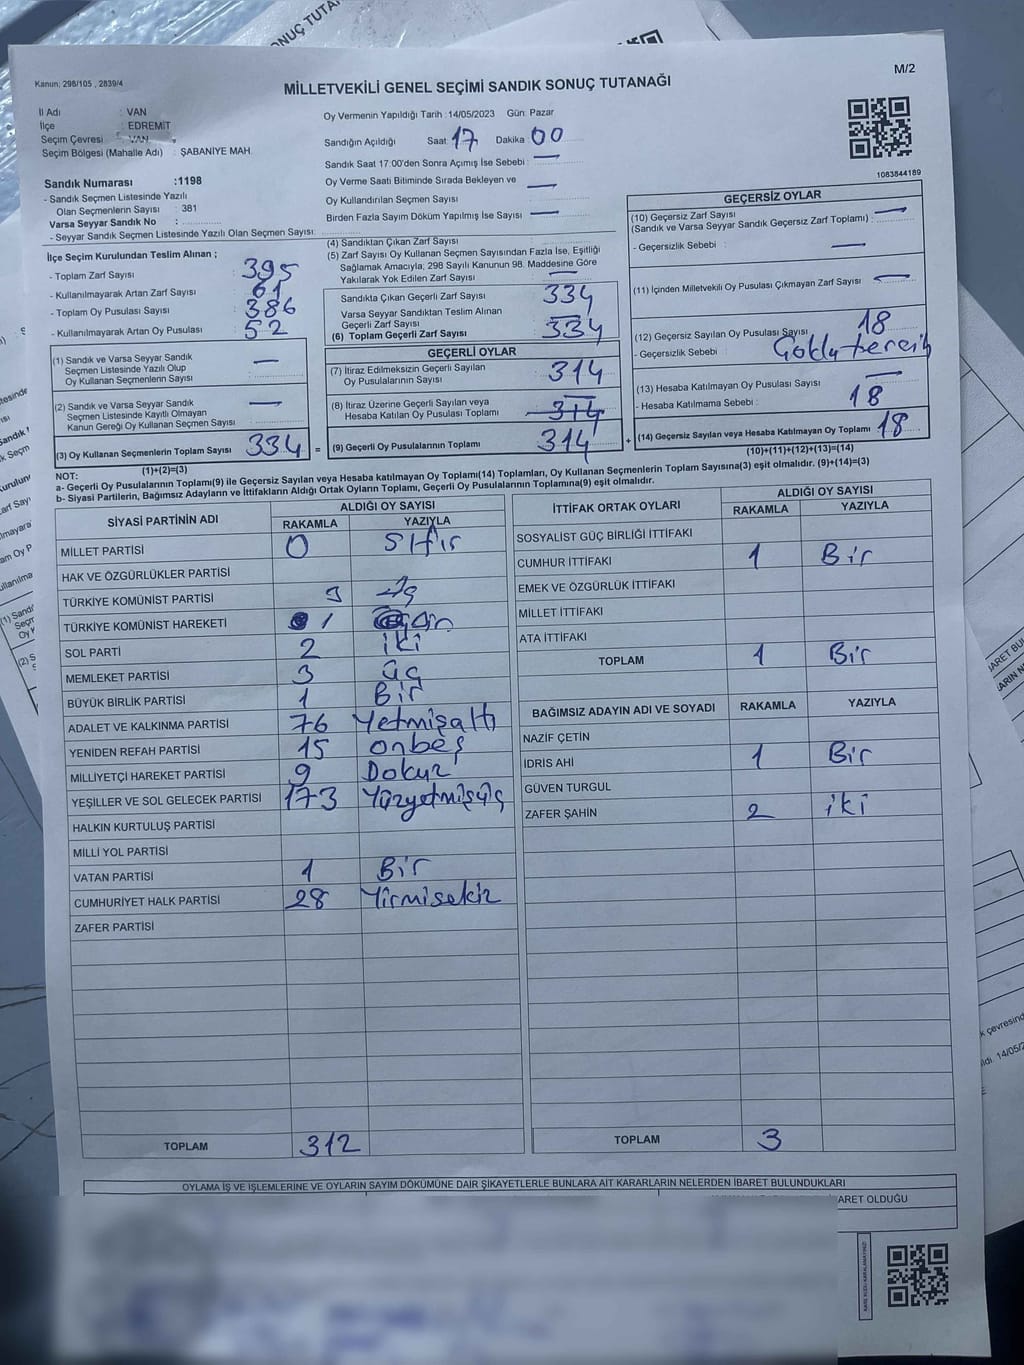 ONUÇ TUTA
Kanun: 298/105 , 2839/4
MİLLETVEKİLİ GENEL SEÇİMİ SANDIK SONUÇ TUTANAĞI
M/2
İl Adı : VAN
İlçe : EDREMİT
Seçim Çevresi : VAN
Seçim Bölgesi (Mahalle Adı) : ŞABANİYE MAH.
Sandık Numarası :1198
- Sandık Seçmen Listesinde Yazılı
Olan Seçmenlerin Sayısı : 381
Varsa Seyyar Sandık No :
- Seyyar Sandık Seçmen Listesinde Yazılı Olan Seçmen Sayısı:
Oy Vermenin Yapıldığı Tarih : 14/05/2023 Gün: Pazar
Sandığın Açıldığı Saat: 17 Dakika: 00
Sandık Saat 17:00'den Sonra Açımış İse Sebebi : —
Oy Verme Saati Bitiminde Sırada Bekleyen ve
Oy Kullandırılan Seçmen Sayısı : —
Birden Fazla Sayım Döküm Yapılmış İse Sayısı : —
1083844189
İlçe Seçim Kurulundan Teslim Alınan ;
- Toplam Zarf Sayısı : 395
- Kullanılmayarak Artan Zarf Sayısı : 61
- Toplam Oy Pusulası Sayısı : 386
- Kullanılmayarak Artan Oy Pusulası : 52
(1) Sandık ve Varsa Seyyar Sandık
Seçmen Listesinde Yazılı Olup
Oy Kullanan Seçmenlerin Sayısı : —
(2) Sandık ve Varsa Seyyar Sandık
Seçmen Listesinde Kayıtlı Olmayan
Kanun Gereği Oy Kullanan Seçmen Sayısı : —
(3) Oy Kullanan Seçmenlerin Toplam Sayısı 334 =
(1)+(2)=(3)
(4) Sandıktan Çıkan Zarf Sayısı
(5) Zarf Sayısı Oy Kullanan Seçmen Sayısından Fazla İse, Eşitliği
Sağlamak Amacıyla, 298 Sayılı Kanunun 98. Maddesine Göre
Yakılarak Yok Edilen Zarf Sayısı : —
Sandıkta Çıkan Geçerli Zarf Sayısı 334
Varsa Seyyar Sandıktan Teslim Alınan
Geçerli Zarf Sayısı : —
(6) Toplam Geçerli Zarf Sayısı 334
GEÇERLİ OYLAR
(7) İtiraz Edilmeksizin Geçerli Sayılan
Oy Pusulalarının Sayısı : 314
(8) İtiraz Üzerine Geçerli Sayılan veya
Hesaba Katılan Oy Pusulası Toplamı 314
(9) Geçerli Oy Pusulalarının Toplamı 314 +
GEÇERSİZ OYLAR
(10) Geçersiz Zarf Sayısı
(Sandık ve Varsa Seyyar Sandık Geçersiz Zarf Toplamı) : —
- Geçersizlik Sebebi : —
(11) İçinden Milletvekili Oy Pusulası Çıkmayan Zarf Sayısı —
(12) Geçersiz Sayılan Oy Pusulası Sayısı 18
- Geçersizlik Sebebi :
(13) Hesaba Katılmayan Oy Pusulası Sayısı —
- Hesaba Katılmama Sebebi : 18
(14) Geçersiz Sayılan veya Hesaba Katılmayan Oy Toplamı 18
(10)+(11)+(12)+(13)=(14)
NOT:
a- Geçerli Oy Pusulalarının Toplamı(9) ile Geçersiz Sayılan veya Hesaba katılmayan Oy Toplamı(14) Toplamları, Oy Kullanan Seçmenlerin Toplam Sayısına(3) eşit olmalıdır. (9)+(14)=(3)
b- Siyasi Partilerin, Bağımsız Adayların ve İttifakların Aldığı Ortak Oyların Toplamı, Geçerli Oy Pusulalarının Toplamına(9) eşit olmalıdır.
SİYASİ PARTİNİN ADI ALDIĞI OY SAYISI
RAKAMLA YAZIYLA
MİLLET PARTİSİ 0 Sıfır
HAK VE ÖZGÜRLÜKLER PARTİSİ
TÜRKİYE KOMÜNİST PARTİSİ 3
TÜRKİYE KOMÜNİST HAREKETİ 1
SOL PARTİ 2 iki
MEMLEKET PARTİSİ 3 üç
BÜYÜK BİRLİK PARTİSİ 1 Bir
ADALET VE KALKINMA PARTİSİ 76 Yetmişaltı
YENİDEN REFAH PARTİSİ 15 onbeş
MİLLİYETÇİ HAREKET PARTİSİ 9 Dokuz
YEŞİLLER VE SOL GELECEK PARTİSİ 173 Yüzyetmişüç
HALKIN KURTULUŞ PARTİSİ
MİLLİ YOL PARTİSİ
VATAN PARTİSİ 1 Bir
CUMHURİYET HALK PARTİSİ 28 Yirmisekiz
ZAFER PARTİSİ
TOPLAM 312
İTTİFAK ORTAK OYLARI ALDIĞI OY SAYISI
RAKAMLA YAZIYLA
SOSYALİST GÜÇ BİRLİĞİ İTTİFAKI
CUMHUR İTTİFAKI 1 Bir
EMEK VE ÖZGÜRLÜK İTTİFAKI
MİLLET İTTİFAKI
ATA İTTİFAKI
TOPLAM 1 Bir
BAĞIMSIZ ADAYIN ADI VE SOYADI RAKAMLA YAZIYLA
NAZİF ÇETİN
İDRİS AHİ 1 Bir
GÜVEN TURGUL
ZAFER ŞAHİN 2 iki
TOPLAM 3
OYLAMA İŞ VE İŞLEMLERİNE VE OYLARIN SAYIM DÖKÜMÜNE DAİR ŞİKAYETLERLE BUNLARA AİT KARARLARIN NELERDEN İBARET BULUNDUKLARI
ARET OLDUĞU